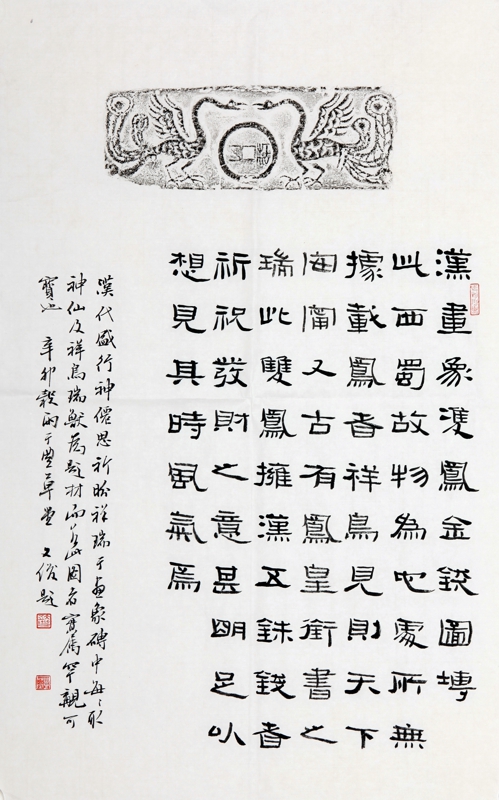 漢畫象雙鳳金錢圖塼
此西蜀故物為他處所無
據載鳳者祥鳥見則天下
甯又古有鳳皇銜書之
瑞此雙鳳擁漢五銖錢者
祈祝發財之意甚明足以
想見其時風氣焉
漢代盛行神僊思祈盼祥瑞于畫象磚中每〻取
神仙及祥鳥瑞獸為題材而若此圖者實屬罕觀可
寶也 辛卯穀雨于豊草堂 文俊題
五銖